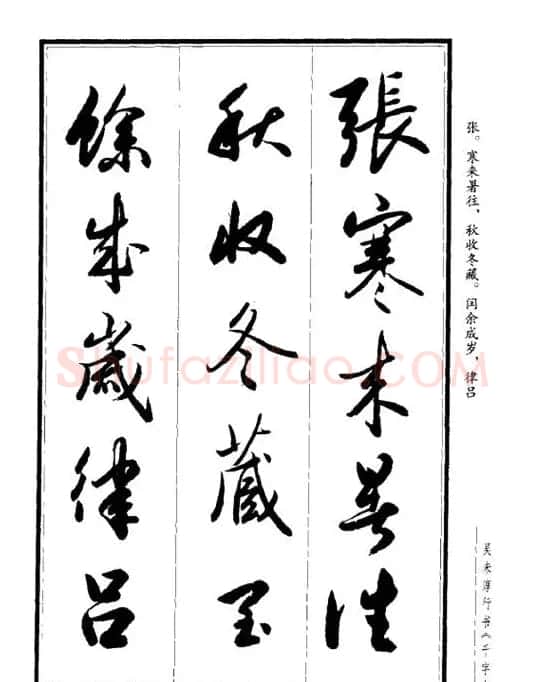 张。寒来暑往，秋收冬藏。闰余成岁，律吕
吴未淳行书《千字
張寒来暑往
秋收冬藏閏
餘成歲律吕
Shufaziliao.COM